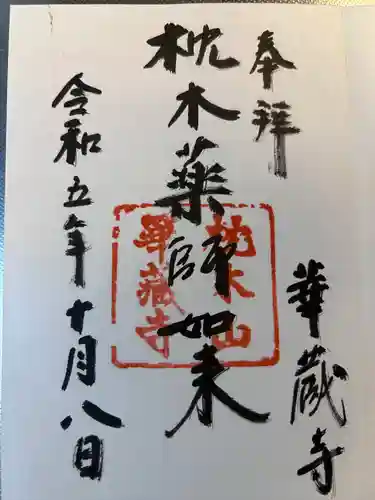 奉拝
華蔵寺
枕木薬師如来
枕木山
華蔵寺
令和五年十月八日